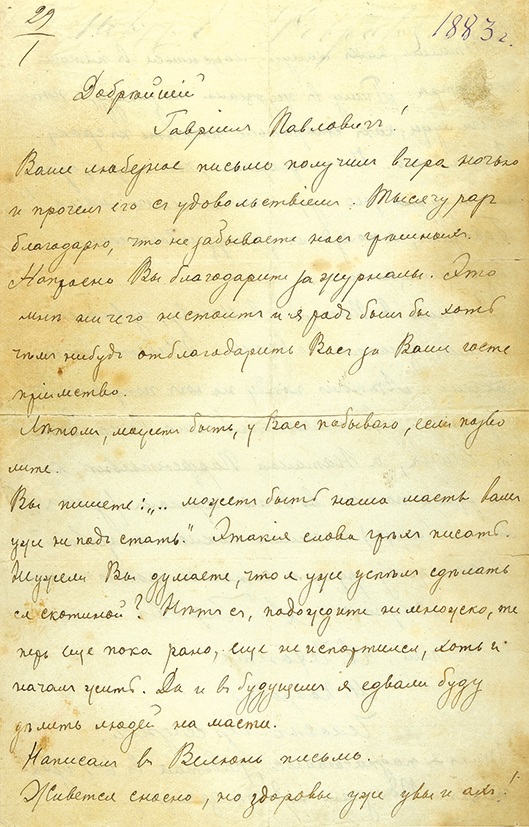 29
1
1883 г.
Добрѣйшій
Гавріилъ Павловичъ!
Ваше любезное письмо получилъ вчера ночью
и прочелъ его съ удовольствіемъ. Тысячу разъ
благодарю, что не забываете насъ грѣшныхъ.
Напрасно Вы благодарите за журналы. Это
мнѣ ничего не стоитъ и я радъ былъ бы хоть
чѣмъ нибудь отблагодарить Васъ за Ваше госте
пріимство.
Лѣтомъ, можетъ быть, у Васъ побываю, если позво
лите.
Вы пишете: „.. можетъ быть наша масть вамъ
уже не подъ стать." Этакія слова грѣхъ писать.
Неужели Вы думаете, что я уже успѣлъ сдѣлать
ся скотиной? Нѣтъ-съ, подождите немножко, те
перь еще пока рано, еще не испортился, хоть и
началъ жить. Да и въ будущемъ я едва ли буду
дѣлить людей на масти.
Написалъ въ Велюнь письмо.
Живется сносно, но здоровье уже увы и ахъ!